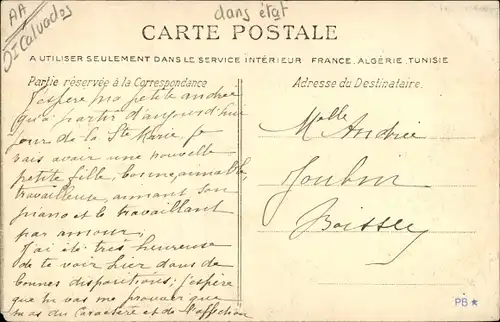 AA
Dt Calvados
dans état
CARTE POSTALE
A UTILISER SEULEMENT DANS LE SERVICE INTÉRIEUR FRANCE, ALGÉRIE, TUNISIE
Partie réservée à la Correspondance
Adresse du Destinataire.
J'espère ma petite andrée
qu'à partir d'aujourd'hui
jour de la Ste Marie je
vais avoir une nouvelle
petite fille, bonne, aimable,
travailleuse, aimant son
piano et le travaillant
par amour;
J'ai été très heureuse
de te voir hier dans de
bonnes dispositions; j'espère
que tu vas me prouver que
tu as du caractère et de l'affection
Melle Andrée
Joubin
Boissey
PB